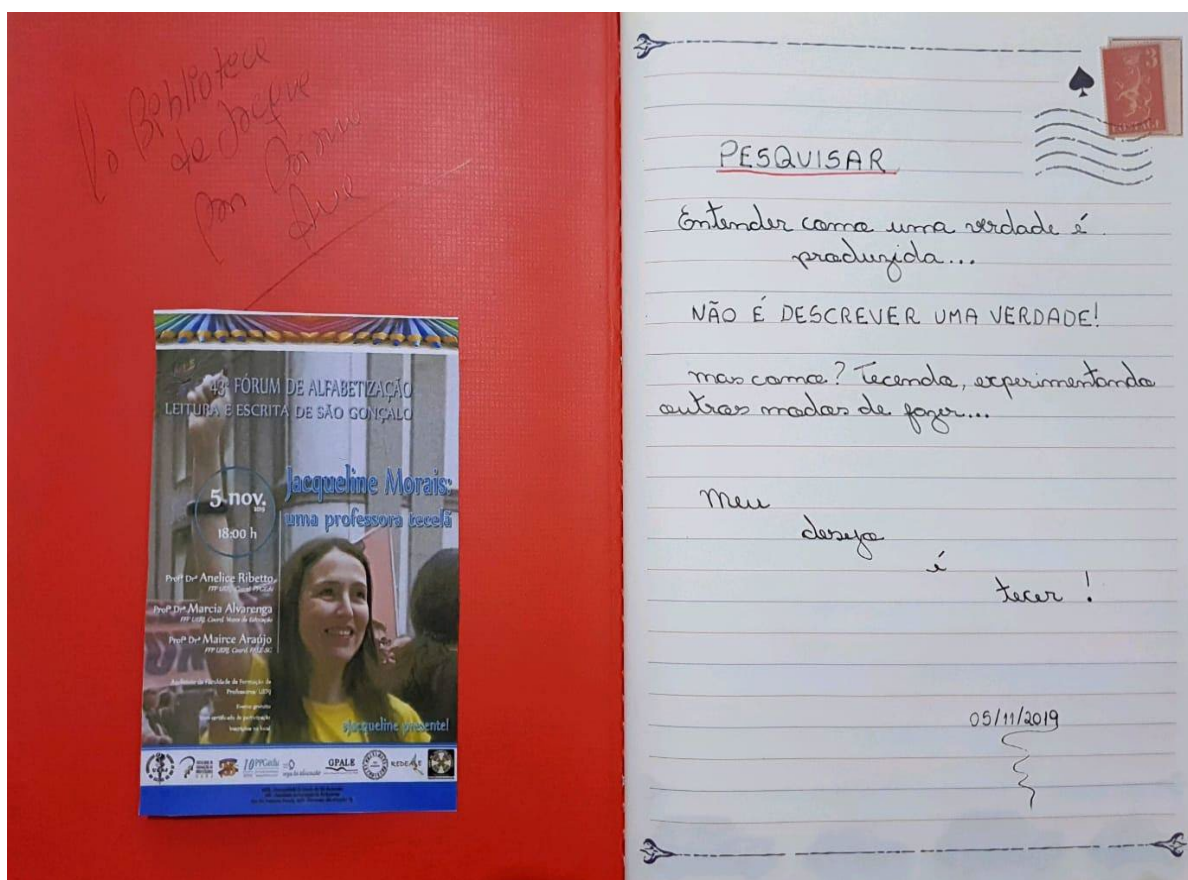 Biblioteca
de Jacque
por
43º FÓRUM DE ALFABETIZAÇÃO
LEITURA E ESCRITA DE SÃO GONÇALO
5 nov.
2019
18:00 h
Jacqueline Morais:
uma professora tecelã
Profª Drª Anelice Ribetto
Profª Drª Marcia Alvarenga
Profª Drª Mairce Araújo
Auditório da Faculdade de Formação de
Professores/ UERJ
Evento gratuito
com certificado de participação
Inscrições no local
Jacqueline presente!
UERJ
PPGedu
GPALE
REDE
PESQUISAR
Entender como uma verdade é
produzida...
NÃO É DESCREVER UMA VERDADE!
mas como? Tecendo, experimentando
outros modos de fazer...
Meu
desejo
é
tecer!
05/11/2019
3